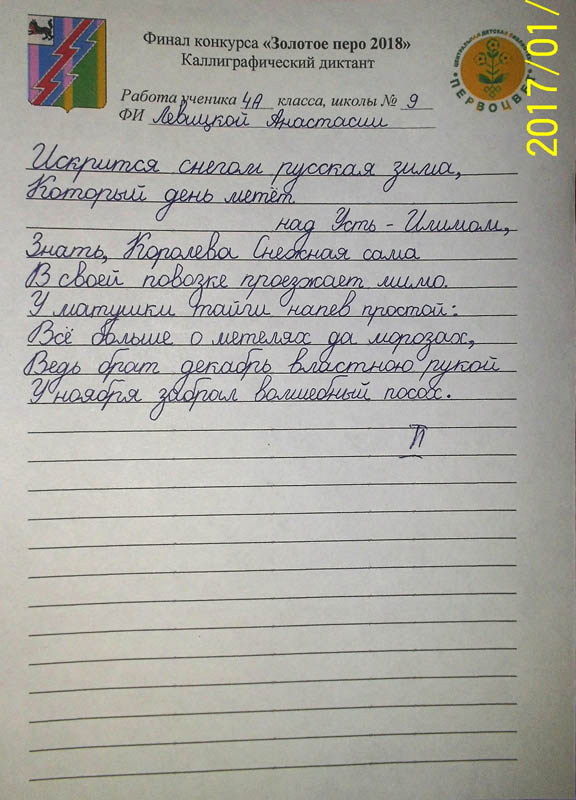 Финал конкурса «Золотое перо 2018»
Каллиграфический диктант
Работа ученика 4А класса, школы № 9
ФИ Левицкой Анастасии
ЦЕНТРАЛЬНАЯ ДЕТСКАЯ БИБЛИОТЕКА
ПЕРВОЦВЕТ
2017/01/
Искрится снегом русская зима,
Который день метёт
над Усть - Илимом,
Знать, Королева Снежная сама
В своей повозке проезжает мимо.
У матушки тайги напев простой:
Всё больше о метелях да морозах,
Ведь брат декабрь властною рукой
У ноября забрал волшебный посох.